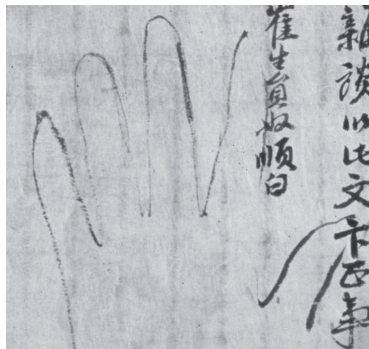 雜談以此文卞正事
崔生員奴順白